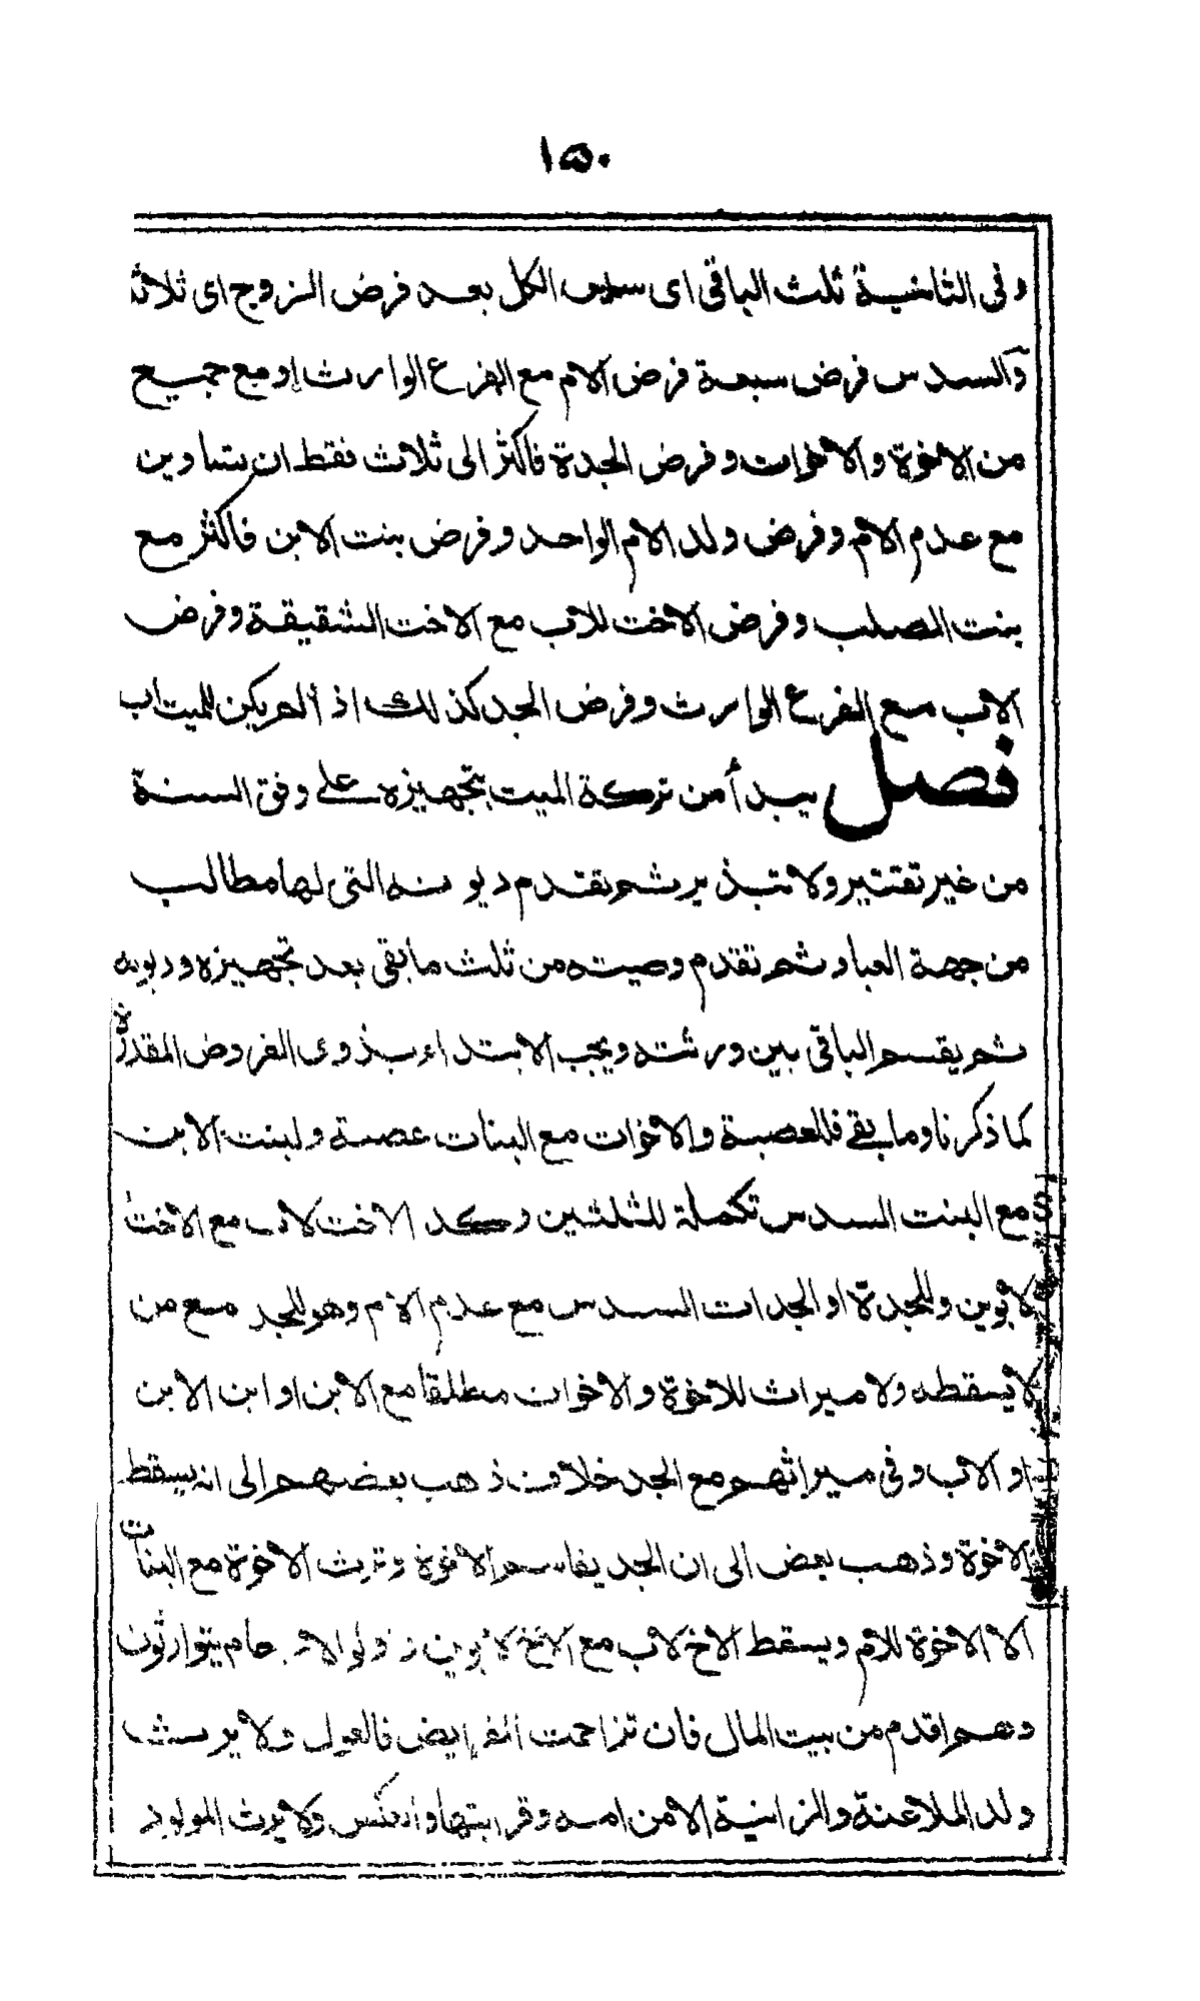 ١٥٠
وفى الثانية ثلث الباقى اى سدس الكل بعد فرض الزوج اى ثلاثة
والسدس فرض سبعة فرض الام مع الفرع الوارث او مع جميع
من الاخوة والاخوات وفرض الجدة فاكثر الى ثلاث فقط ان تساوين
مع عدم الام وفرض ولد الام الواحد وفرض بنت الابن فاكثر مع
بنت الصلب وفرض الاخت للاب مع الاخت الشقيقة وفرض
الاب مع الفرع الوارث وفرض الجد كذلك اذا لم يكن للميت اب
فصل يبدأ من تركة الميت بتجهيزه على وفق السنة
من غير تقتير ولا تبذير ثم تقدم ديونه التى لها مطالب
من جهة العباد ثم تقدم وصيته من ثلث ما بقى بعد تجهيزه وديونه
ثم يقسم الباقى بين ورثته ويجب الابتداء بذوى الفروض المقدرة
كما ذكرنا وما بقى فللعصبة والاخوات مع البنات عصبة ولبنت الابن
مع البنت السدس تكملة للثلثين وكذا الاخت لاب مع الاخت
لابوين وللجدة او الجدات السدس مع عدم الام وهو للجد مع من
لا يسقطه ولا ميراث للاخوة والاخوات مطلقا مع الابن او ابن الابن
او الاب وفى ميراثهم مع الجد خلاف ذهب بعضهم الى انه يسقط
الاخوة وذهب بعض الى ان الجد يقاسم الاخوة وترث الاخوة مع البنات
الا الاخوة للام ويسقط الاخ لاب مع الاخ لابوين واولو الارحام يتوارثون
وهم اقدم من بيت المال فان تزاحمت الفرايض فالعول ولا يرث
ولد الملاعنة والزانية الا من امه وقرابتها والعكس ولا يرث المولود